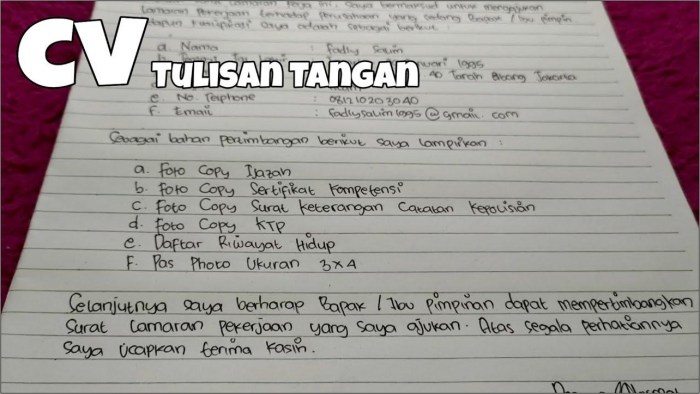 lamaran pekerjaan terhadap perusahaan yang sedang Bapak / Ibu pimpin
CV TULISAN TANGAN
a. Nama : Fadly Salim
Januari 1995
40 Tanah Abang Jakarta
e. No. Telphone : 081710203040
F. Email : fadlysalim1995@gmail.com
Sebagai bahan pertimbangan berikut saya lampirkan :
a. Foto Copy Ijazah
b. Foto Copy Sertifikat Kompetensi
c. Foto Copy Surat Keterangan Catatan Kepolisian
d. Foto Copy KTP
e. Daftar Riwayat Hidup
F. Pas Photo Ukuran 3x4
Selanjutnya saya berharap Bapak / Ibu Pimpinan dapat mempertimbangkan
Surat Lamaran pekerjaan yang saya ajukan. Atas segala perhatiannya
saya ucapkan terima kasih.